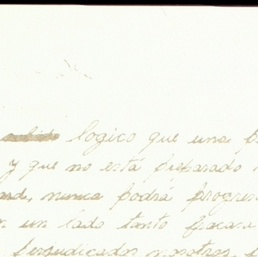 logico que una
y que no está preparado
nunca podrá progre
un lado tanto
perjudicados nosotros,